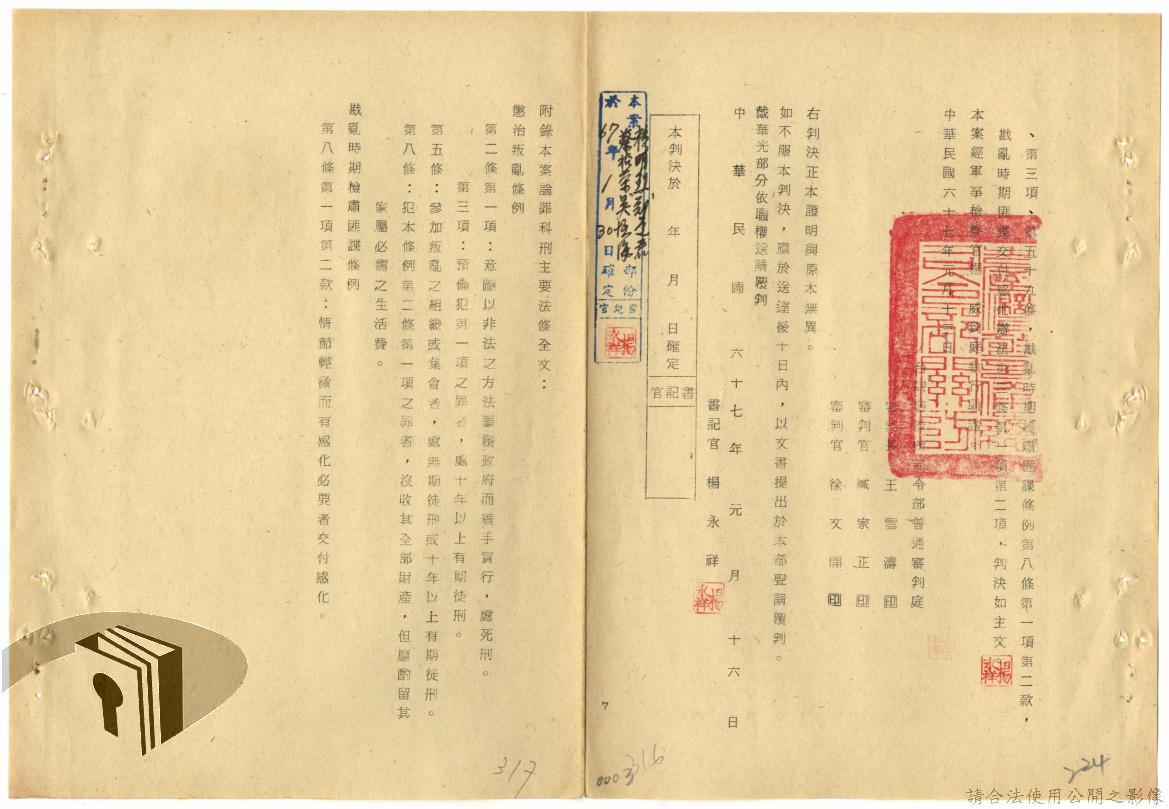 、第三項、第五十九條，戡亂時期檢肅匪諜條例第八條第一項第二款，
戡亂時期匪諜交付感化辦法第二條第一項第二項，判決如主文。
本案經軍事檢察官楊　威到庭執行職務。
中華民國六十七年元月十二日
令部普通審判庭
王　雲　濤　印
審判官　臧　家　正　印
審判官　徐　文　開　印
右判決正本證明與原本無異。
如不服本判決，應於送達後十日內，以文書提出於本部聲請覆判。
戴華光部分依職權送請覆判
中　華　民　國　六　十　七　年　元　月　十　六　日
書記官　楊　永　祥
楊永祥
本判決於　年　月　日確定
書記官
本案
部份
於67年1月30日確定
書記官
楊永祥
附錄本案論罪科刑主要法條全文：
懲治叛亂條例
第二條第一項：意圖以非法之方法顛覆政府而着手實行，處死刑。
第三項：預備犯第一項之罪者，處十年以上有期徒刑。
第五條：參加叛亂之組織或集會者，處無期徒刑或十年以上有期徒刑。
第八條：犯本條例第二條第一項之罪者，沒收其全部財產，但應酌留其
家屬必需之生活費。
戡亂時期檢肅匪諜條例
第八條第一項第二款：情節輕微而有感化必要者交付感化。
7
317
0003
316
224
請合法使用公開之影像